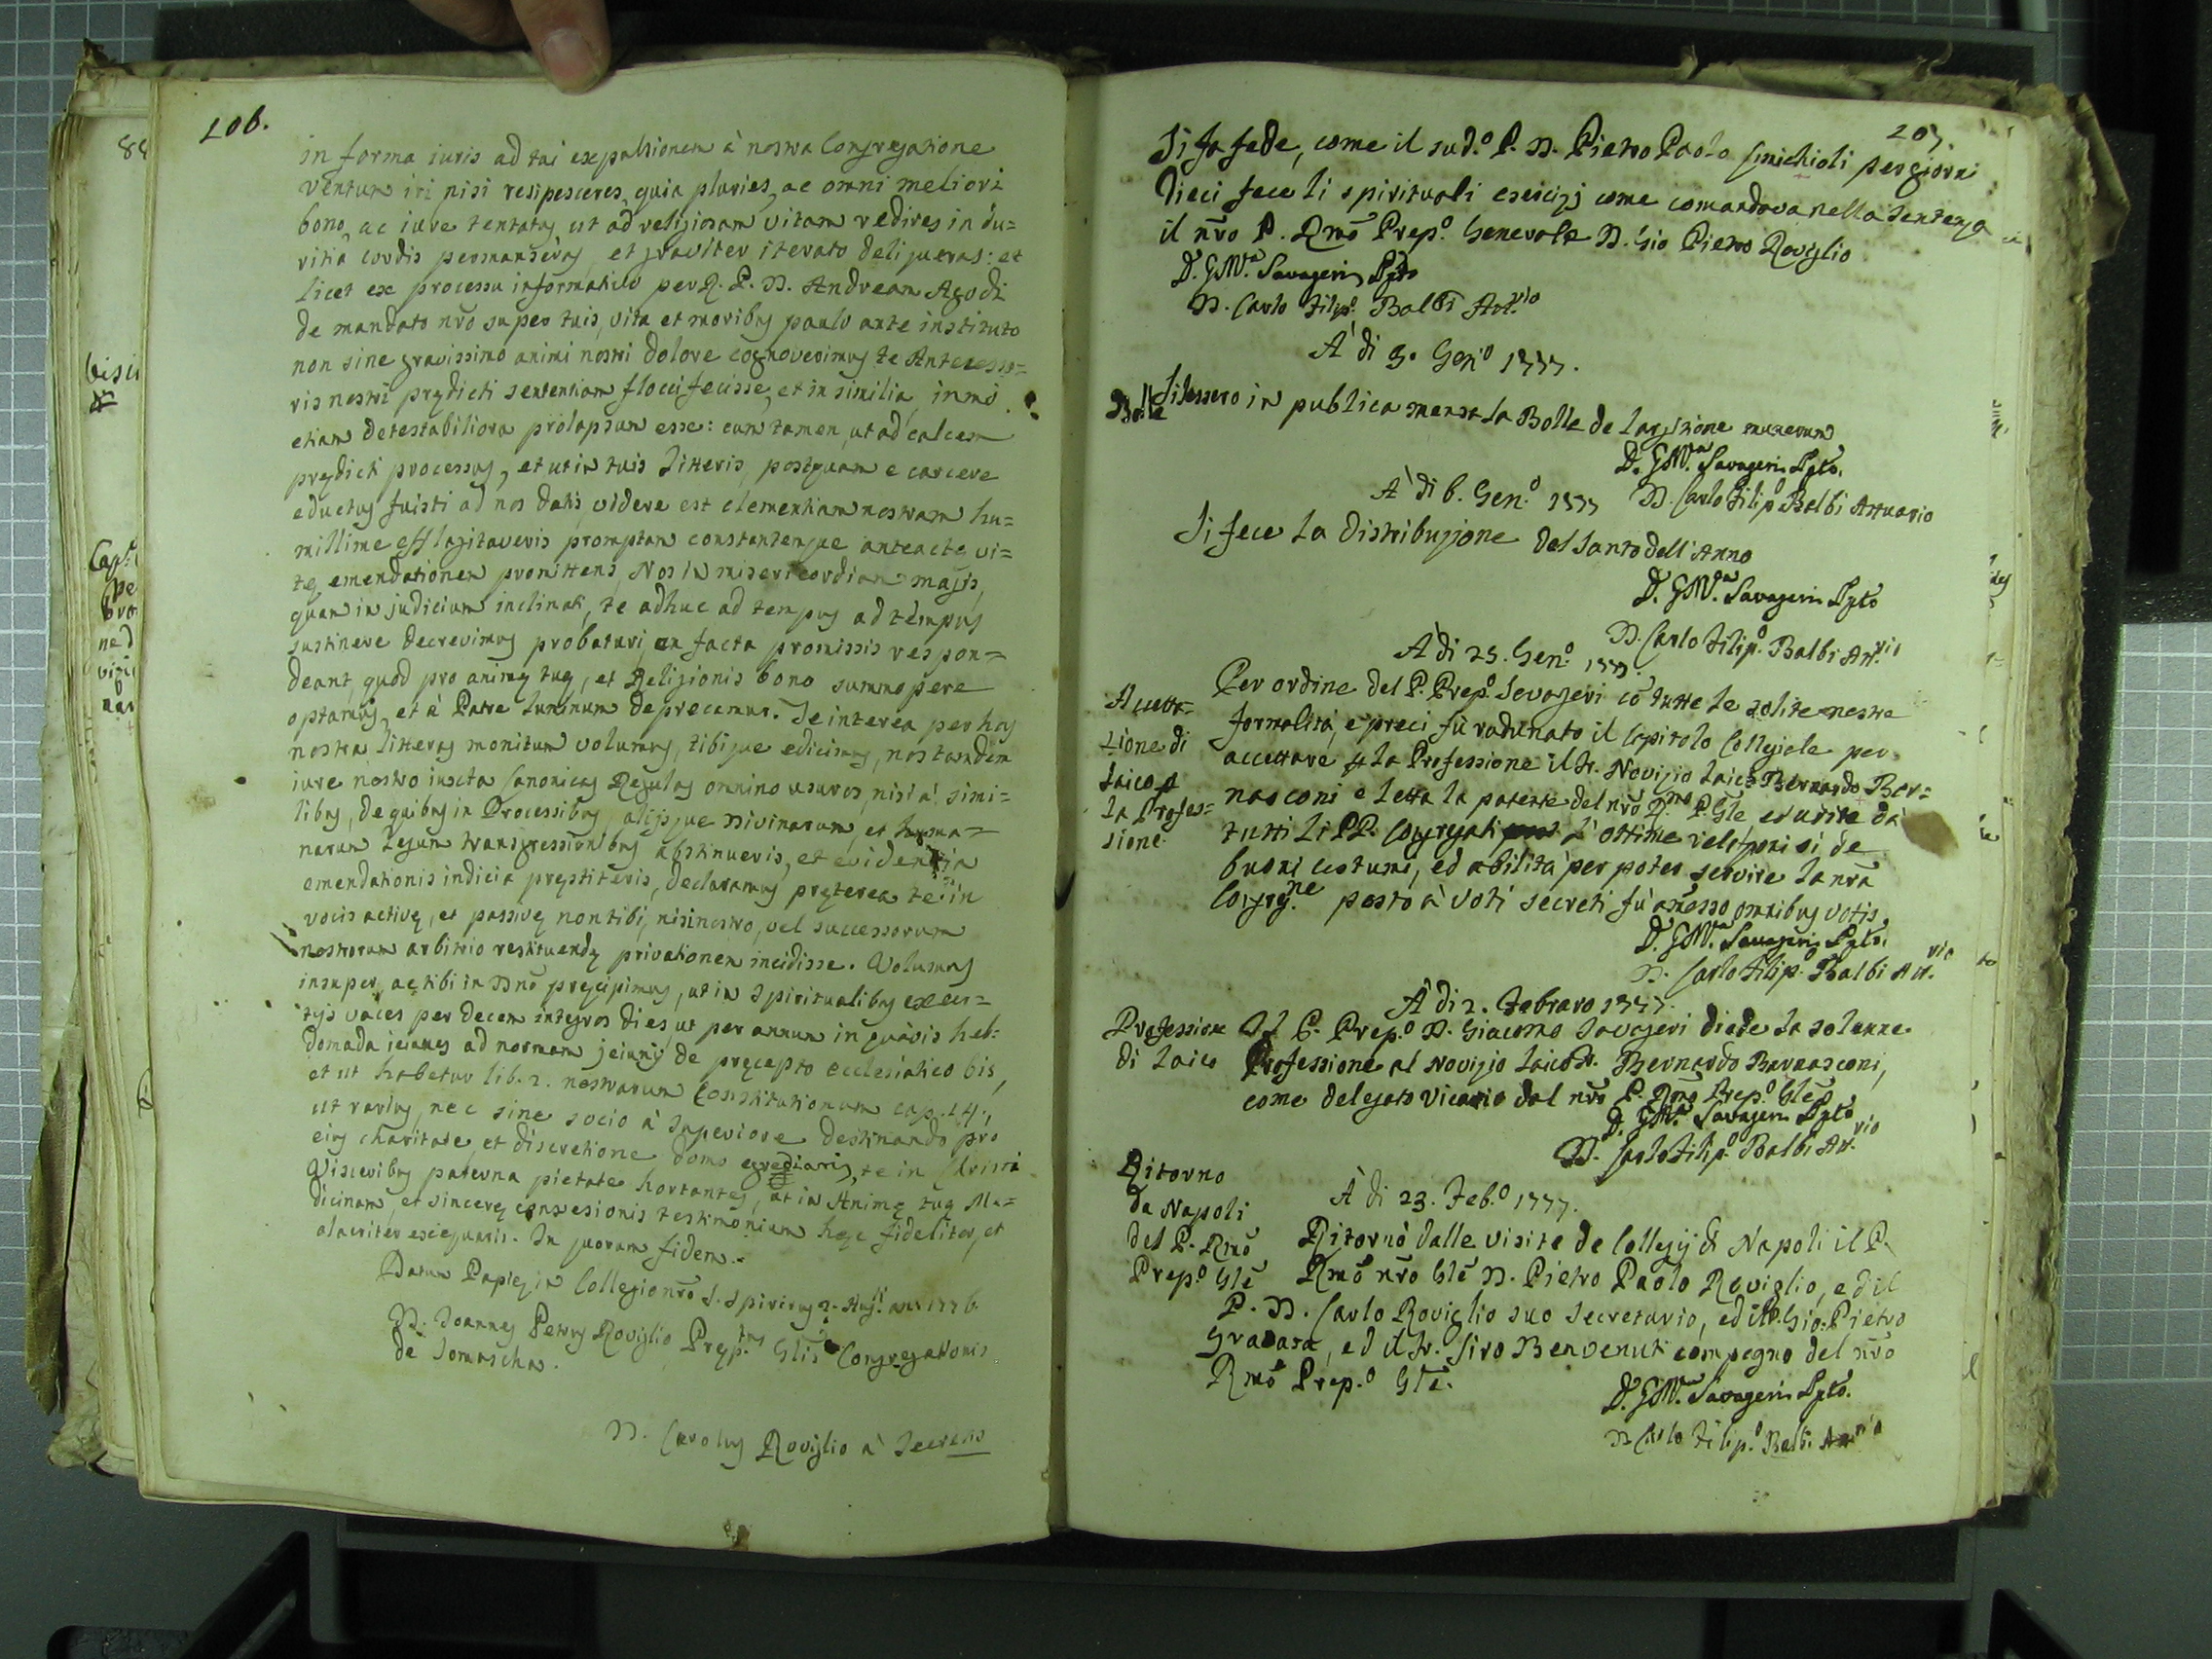 106.
in forma iuris ad tui expulsionem à nostra Congregatione
ventum iri nisi resipesceres, quia pluries, ac omni meliori
bono, ac iure tentatus ut ad religiosam vitam redires in du=
ritia cordis permanseras, et graviter iterato deliqueras: et
licet ex processu informativo per R. P. D. Andream Agodi
de mandato nrõ super tuis, vita et moribus paulo ante instituto
non sine gravissimo animi nostri dolore cognoverimus te Antecesso=
ris nostri prędicti sententiam flocci fecisse, et in similia, immò
etiam detestabiliora prolapsum esse: cum tamen, ut ad calcem
prędicti processus, et ut in tuis litteris, postquam e carcere
eductus fuisti ad nos datis, videre est clementiam nostram hu=
millime efflagitaveris promptam constantemque anteactę vi=
tę emendationem promittens, Nos in misericordiam magis,
quam in judicium inclinati, te adhuc ad tempus ad tempus
sustinere decrevimus probaturi, an facta promissis respon=
deant, quod pro animę tuę, et Religionis bono summopere
optamus, et à Patre luminum deprecamur. Te interea per has
nostras litteras monitum volumus, tibique edicimus, nos tandem
iure nostro iuxta Canonicas Regulas omnino usuros, nisi a' simi=
libus, de quibus in Processibus, alijsque Divinarum, et huma=
narum legum transgressionibus abstinueris, et evidentia
emendationis indicia pręstiteris, declaramus pręterea te in
vocis activę, et passivę non tibi, nisi nostro, vel successorum
nostrorum arbitrio restituendę privationem incidisse. Volumus
insuper, ac tibi in Dnõ pręcipimus, ut in spiritualibus exerci=
tijs vaces per decem integros dies, ut per annum in quavis heb:
domada ieiunes ad normam jeiunij de pręcepto ecclesiatico bis,
et ut habetur lib. 2. nostrarum Constitutionum cap. 14.,
ut rarius, nec sine socio à Superiore destinando pro
eius charitate, et discretione domo egrediaris, te in Christi
Visceribus paterna pietate hortantes, ut in Animę tuę Me=
dicinam, et sincerę conversionis testimonium hęc fideliter, et
alacriter exequaris. In quorum fidem.
Datum Papię in Collegio nrõ S. Spiritus 2. Augti. anni 1776.
D. Joannes Petrus Roviglio Pręp.tus Glis Congregationis
de Somascha.
D. Carolus Roviglio à Secretis
107.
Si fa fede, come il sud.o P. D. Pietro Paolo per giorni
dieci fece li spirituali esercizj come comandava nella sentenza
il nrõ P. Rmõ Prep.o Generale D. Gio Pietro Roviglio
D. G.M.a Savageri Ppto
D. Carlo Filip.o Balbi Att.rio
A' di 3. Gen.o 1777.
Bolle
Si lessero in publica mensa la Bolle de largitione munerum
D. G.M.a Savageri Ppto.
A' di 6. Gen.o 1777 D. Carlo Filip.o Balbi Attuario
Si fece la distribuzione del Santo dell'Anno
D. G.M.a Savageri Ppto
D. Carlo Filip.o Balbi Att.rio
A' di 25. Gen.o 1777.
Accetta=
zione di
laico p
la Profes=
sione.
Per ordine del P. Prep.o Savageri cõ tutte le solite nostre
formalità, e preci fù radunato il Capitolo Collegiale per
accettare p la Professione il Fr. Novizio laico Bernardo Ber=
nasconi e letta la patente del nrõ R.mo P. Gle ed udite da
tutti li PP. Congregati l'ottime relazioni sì de
buoni costumi, ed abilità per poter servire la nrã
Congrg.ne posto à voti secreti fù amesso omnibus votis.
D. G.M.a Savageri Ppto.
D. Carlo Filip.o Balbi Att.rio
A' di 2. Febraro 1777.
Professione
di laico
Il P. Prep.o D. Giacomo Savageri diede la solenne
Professione al Novizio laico Fr. Bernardo Bernasconi,
come delegato Vicario dal nrõ P. Rmõ Prep.o Glẽ
D. G.M.a Savageri Ppto
D. Carlo Filip.o Balbi Att.rio
Ritorno
da Napoli
del P. Rmõ
Prep.o Glẽ
A' di 23. Feb.o 1777.
Ritornò dalle visite de Collegij di Napoli il P.
Rmõ nrõ Glẽ D. Pietro Paolo Roviglio, ed il
P. D. Carlo Roviglio suo Secretario, ed il P. Gio: Pietro
ed il Fr. Siro Benvenuti compagno del nrõ
Rmõ Prep.o Glẽ.
D. G.M.a Savageri Ppto.
D. Carlo Filip.o Balbi Att.rio